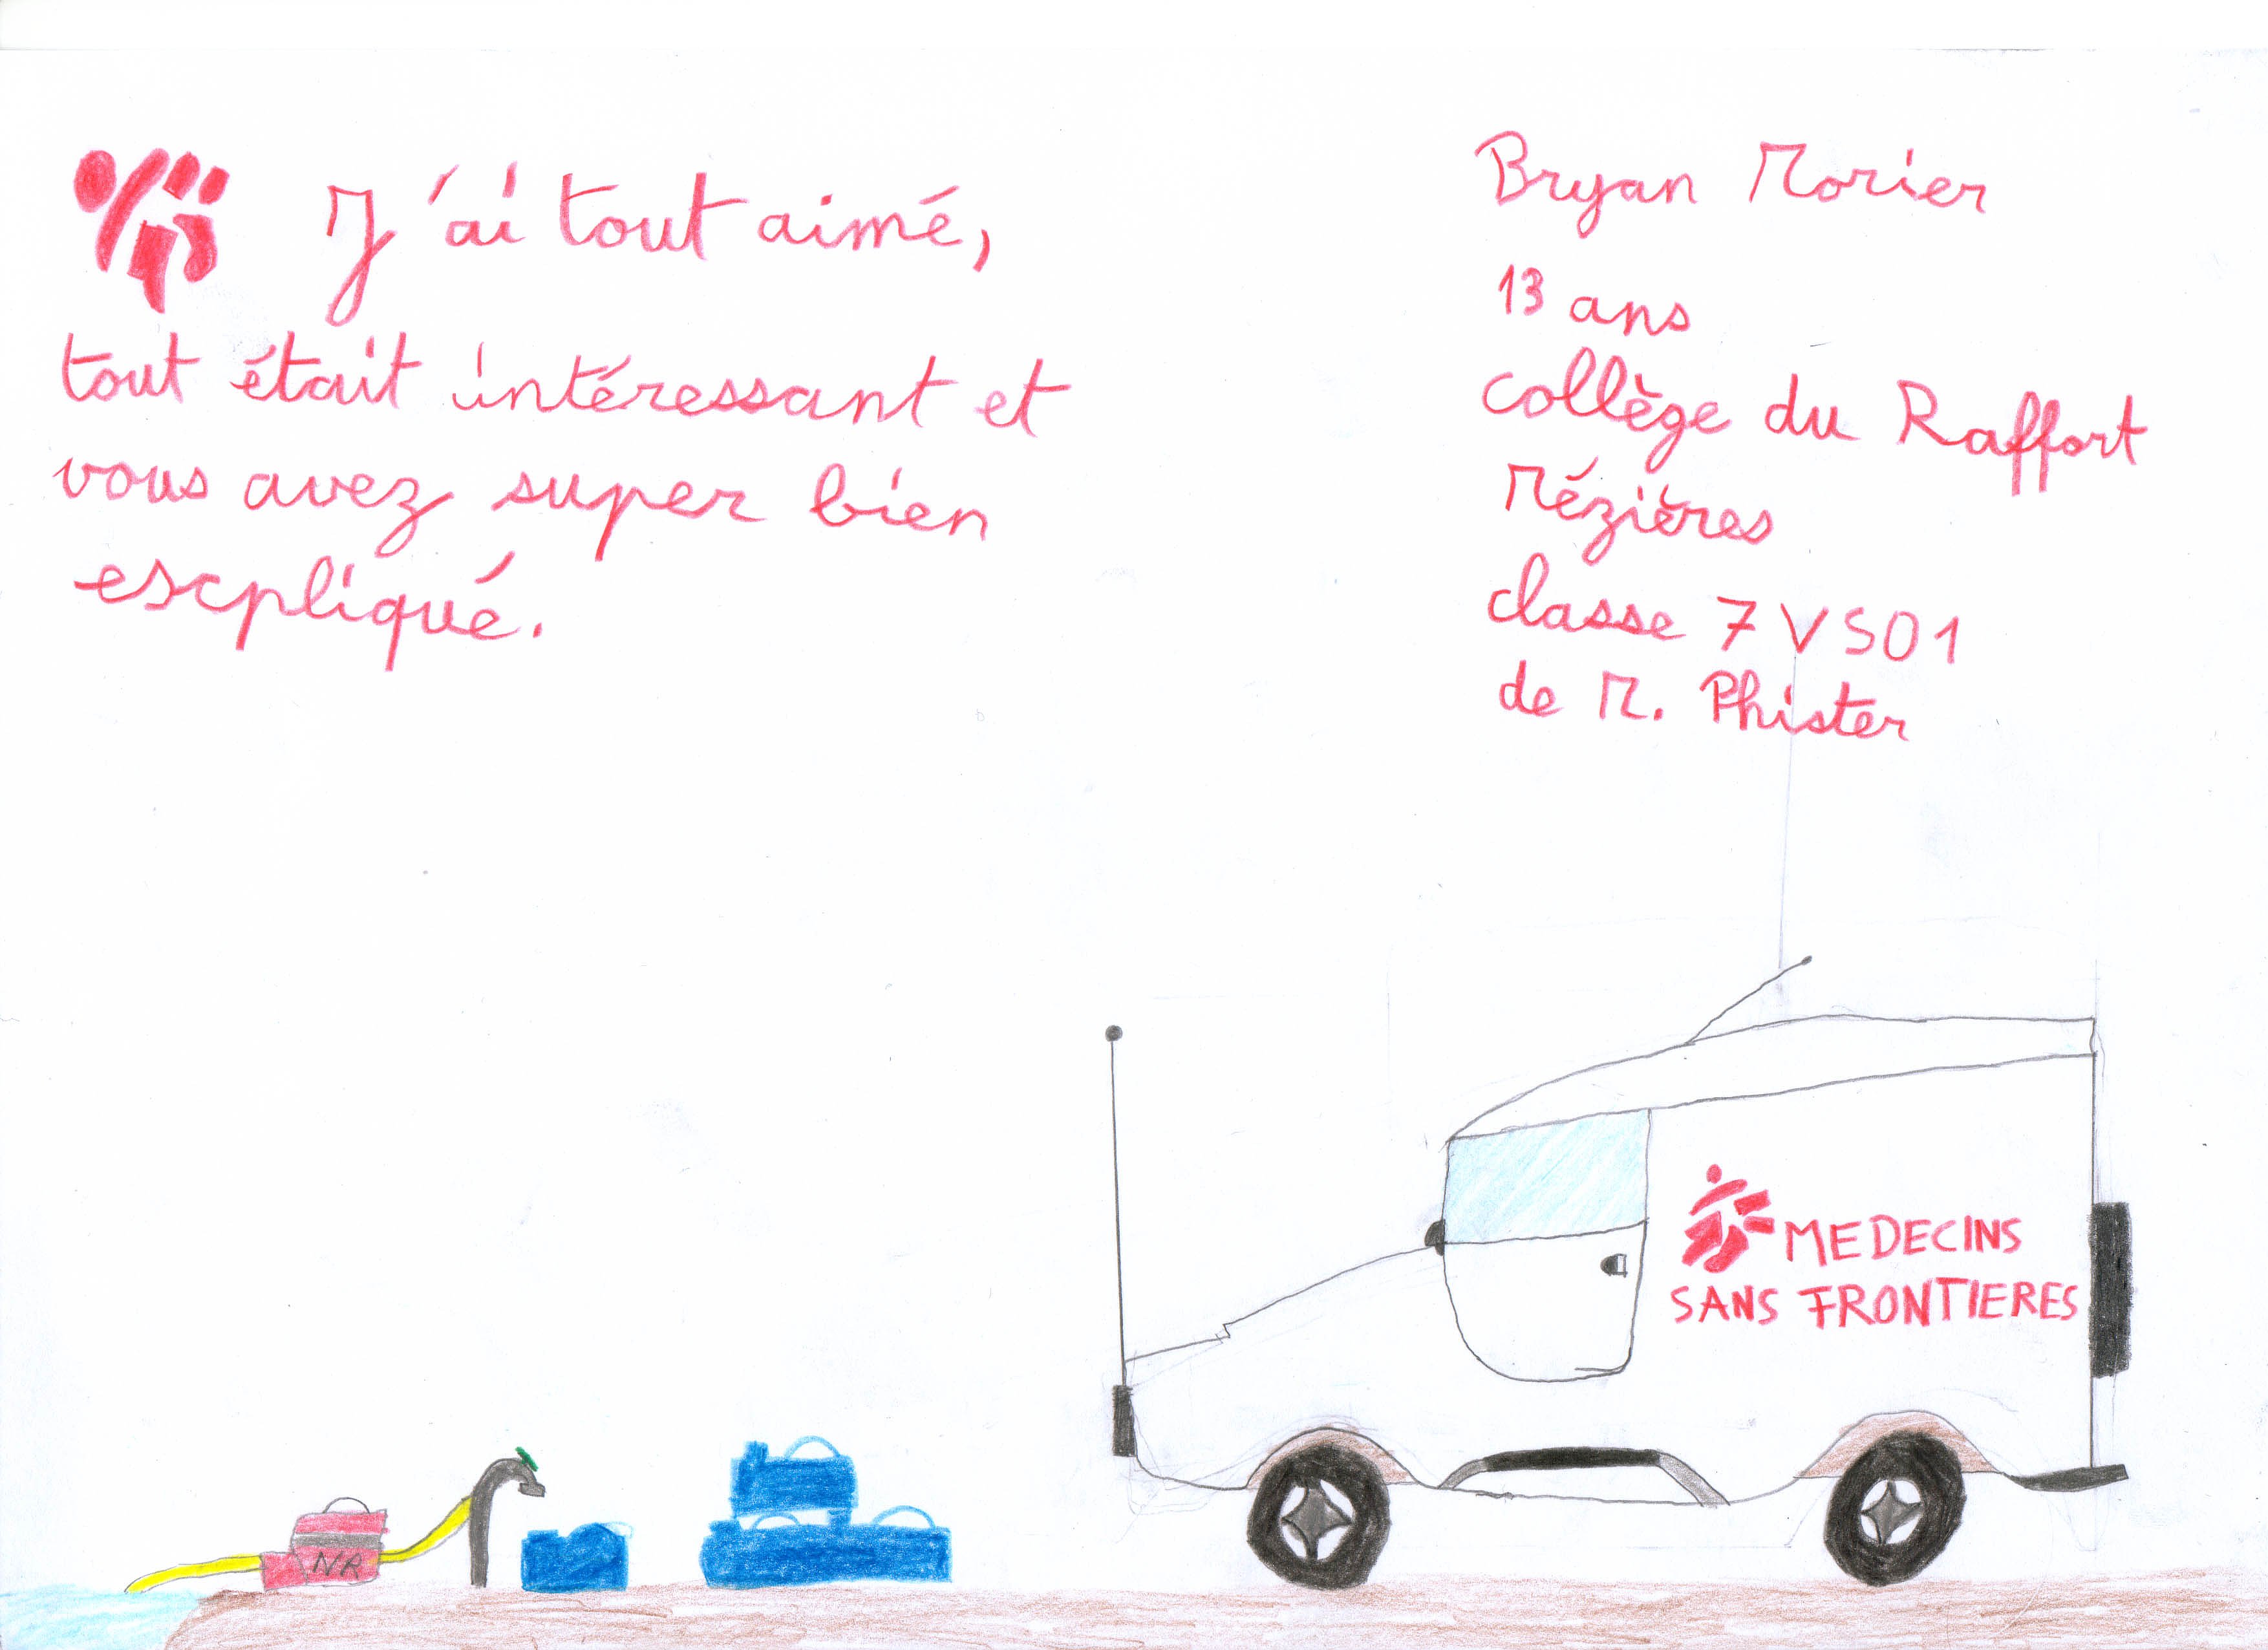 J'ai tout aimé,
tout était intéressant et
vous avez super bien
escpliqué.
Bryan Morier
13 ans
collège du Raffort
Mézières
classe 7VSO1
de M. Phister
MEDECINS
SANS FRONTIERES
NR